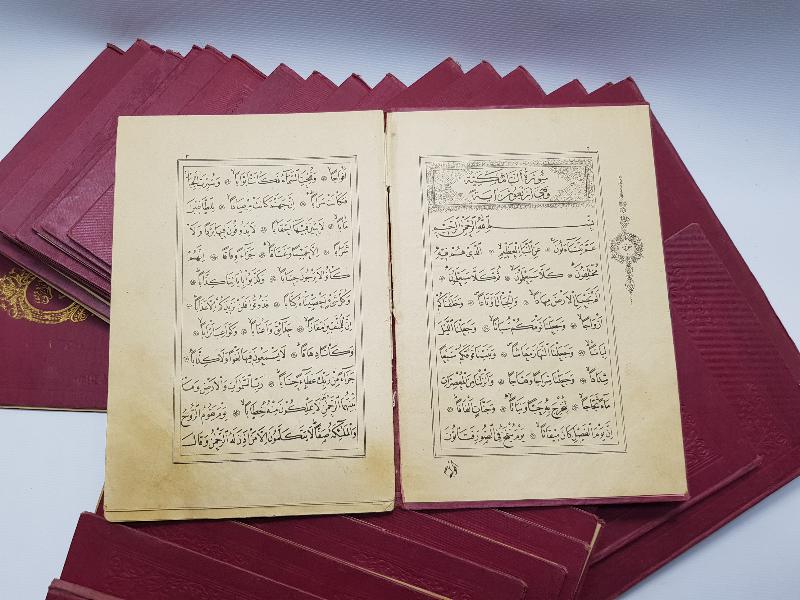 سورة النبأ مكية
وهي اربعون اية
بسم الله الرحمن الرحيم
عم يتساءلون عن النبإ العظيم الذي هم فيه
مختلفون كلا سيعلمون ثم كلا سيعلمون
ألم نجعل الأرض مهادا والجبال أوتادا وخلقناكم
أزواجا وجعلنا نومكم سباتا وجعلنا الليل
لباسا وجعلنا النهار معاشا وبنينا فوقكم سبعا
شدادا وجعلنا سراجا وهاجا وأنزلنا من المعصرات
ماء ثجاجا لنخرج به حبا ونباتا وجنات ألفافا
إن يوم الفصل كان ميقاتا يوم ينفخ في الصور فتأتون
٣
أفواجا وفتحت السماء فكانت أبوابا وسيرت الجبال
فكانت سرابا إن جهنم كانت مرصادا للطاغين
مآبا لابثين فيها أحقابا لا يذوقون فيها بردا ولا
شرابا إلا حميما وغساقا جزاء وفاقا إنهم
كانوا لا يرجون حسابا وكذبوا بآياتنا كذابا
وكل شيء أحصيناه كتابا فذوقوا فلن نزيدكم إلا عذابا
إن للمتقين مفازا حدائق وأعنابا وكواعب أترابا
وكأسا دهاقا لا يسمعون فيها لغوا ولا كذابا
جزاء من ربك عطاء حسابا رب السموات والأرض وما
بينهما الرحمن لا يملكون منه خطابا يوم يقوم الروح
والملئكة صفا لا يتكلمون إلا من أذن له الرحمن وقال